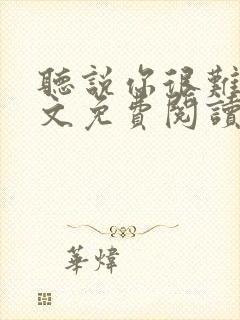 聽說你很難
文免費閱讀
華煒